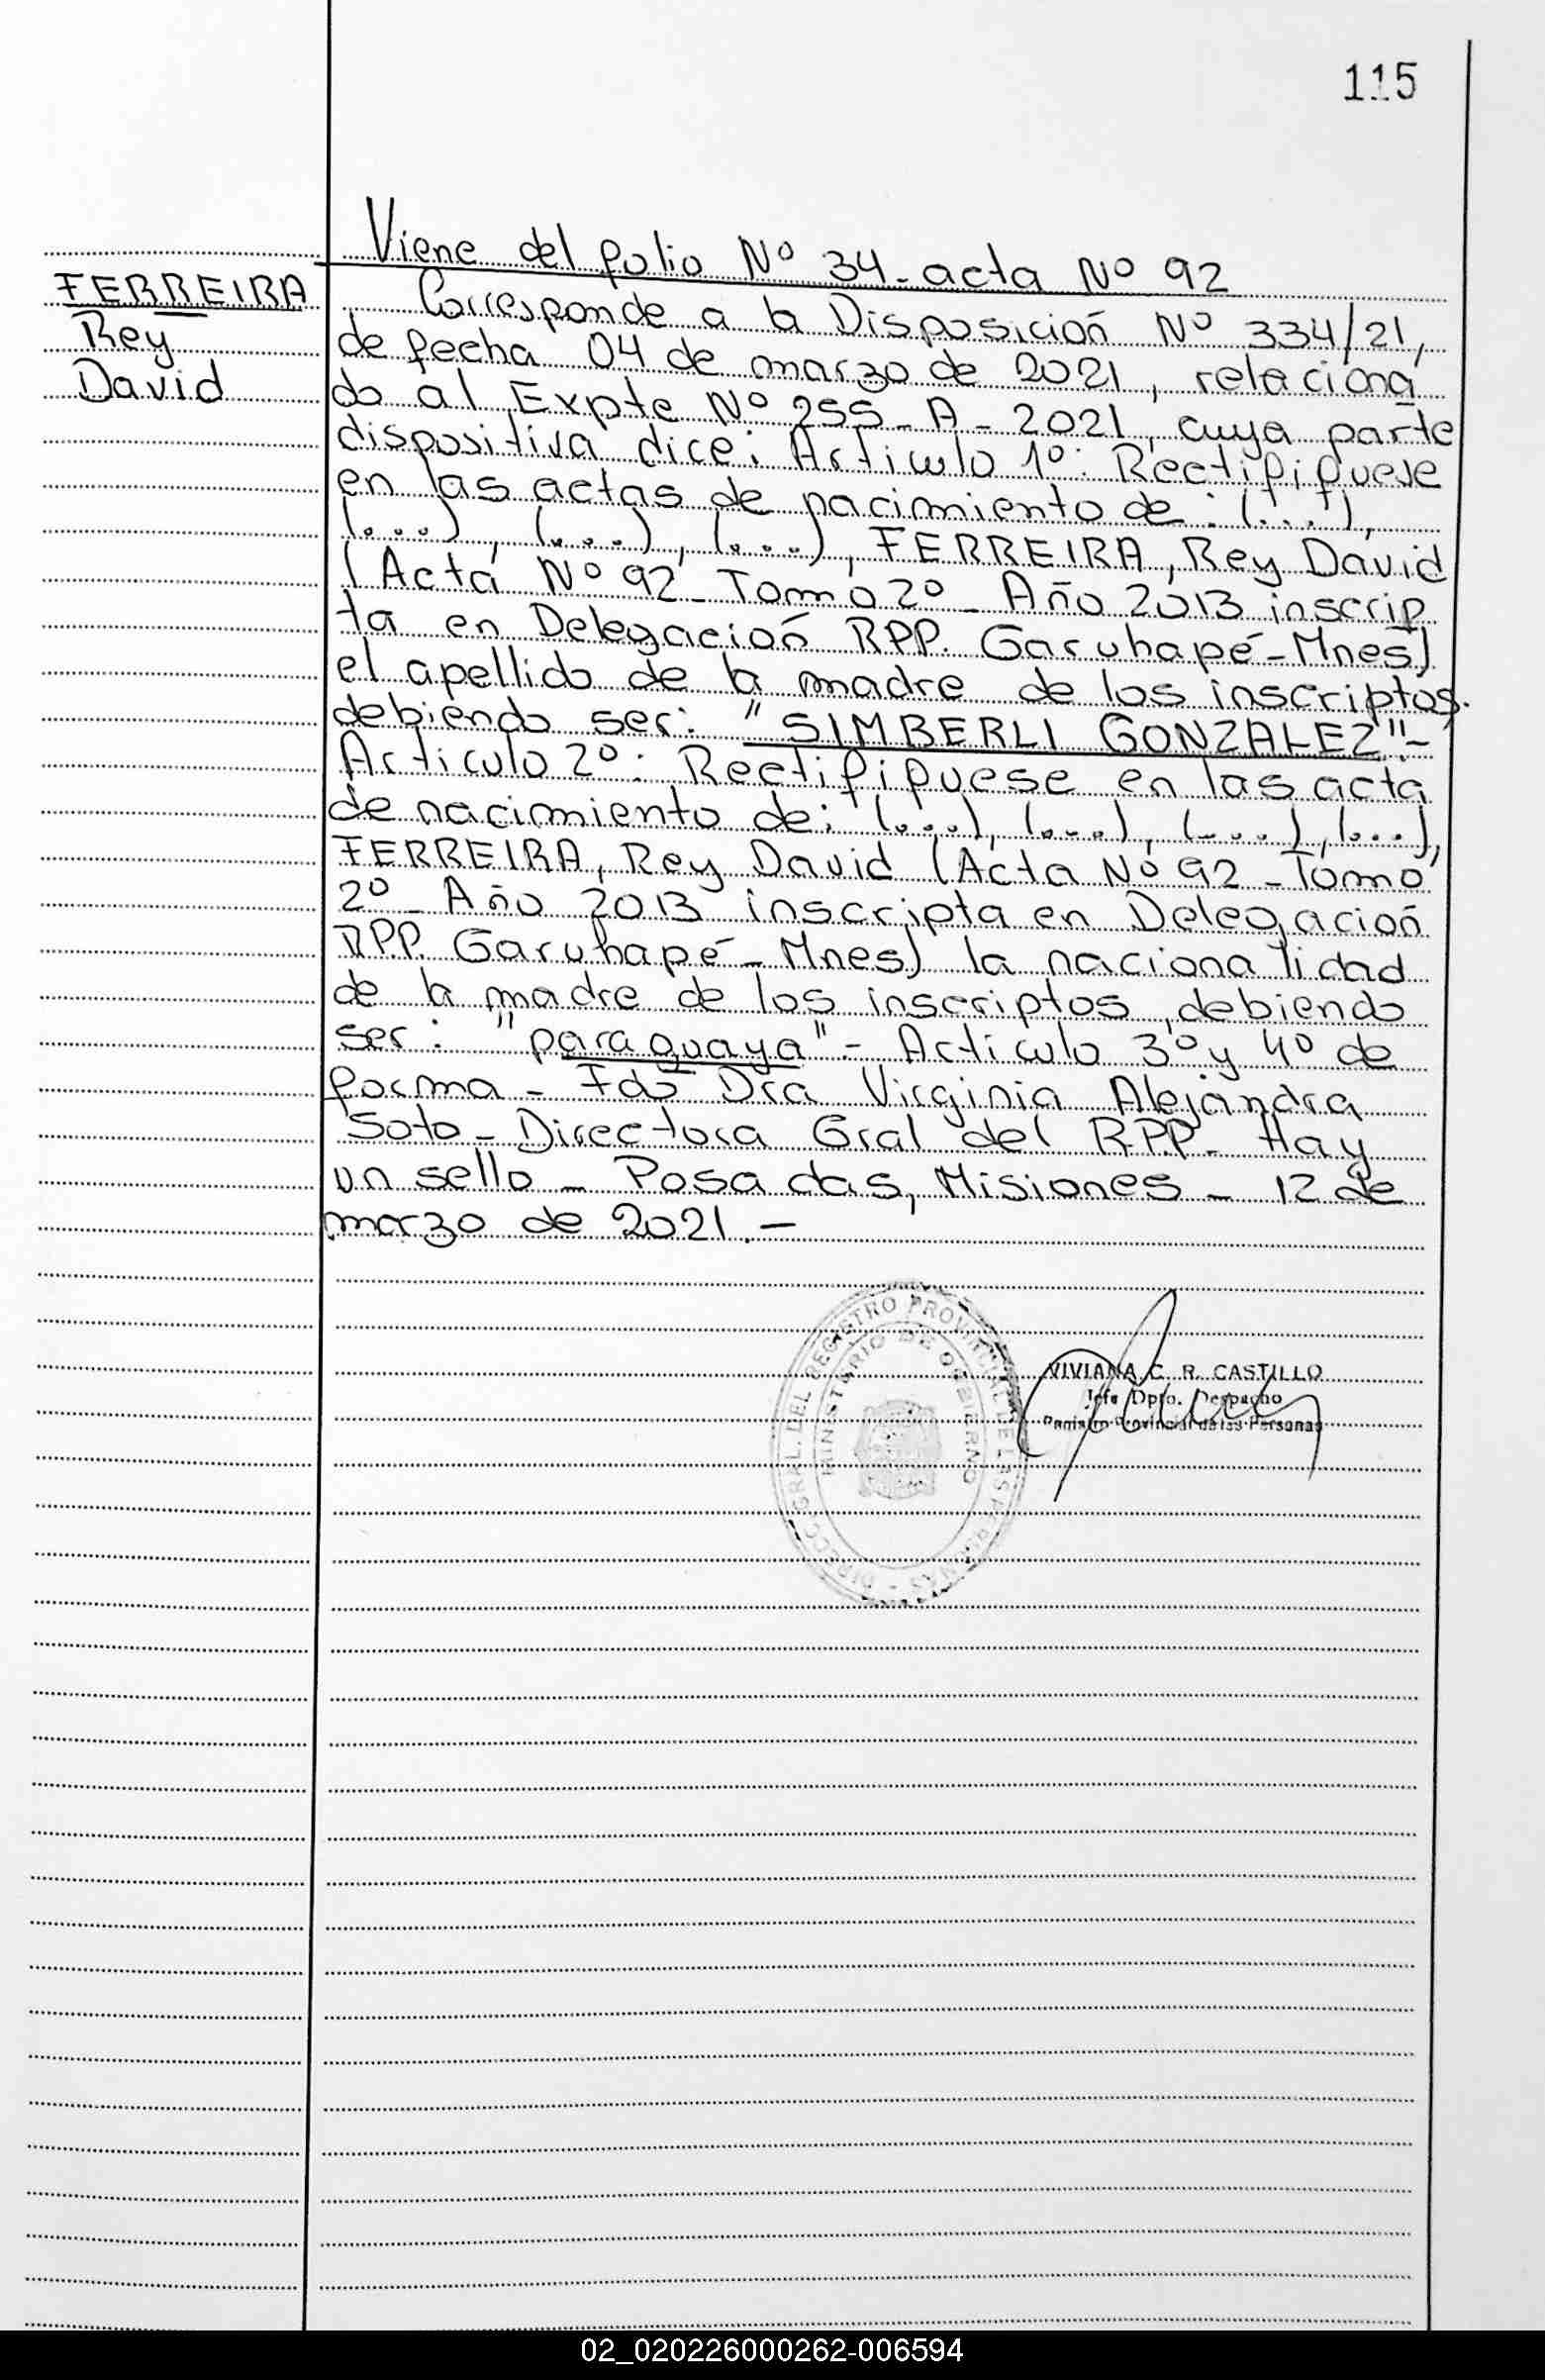 115
Viene del folio Nº 34- acta Nº 92
FERREIRA
Rey
David
Corresponde a la Disposición Nº 334/21,
de fecha 04 de marzo de 2021, relaciona
do al Expte Nº 255- A - 2021, cuya parte
dispositiva dice: Artículo 1º: Rectifíquese
en las actas de nacimiento de: (...),
(...), (...), (...), FERREIRA, Rey David
(Acta Nº 92 - Tomo 2º - Año 2013 inscrip
ta en Delegación RPP. Garuhapé-Mnes)
el apellido de la madre de los inscriptos.
debiendo ser: "SIMBERLI GONZALEZ"-
Articulo 2º: Rectifiquese en las acta
de nacimiento de: (...), (...), (...), (...),
FERREIRA, Rey David (Acta Nº 92 - Tomo
2º - Año 2013 inscripta en Delegación
RPP. Garuhapé - Mnes) la nacionalidad
de la madre de los inscriptos, debiendo
ser: "paraguaya"- Articulo 3º y 4º de
forma - Fdo Dra Virginia Alejandra
Soto - Directora Gral del R.P.P- Hay
un sello - Posadas, Misiones - 12 de
marzo de 2021.-
DIRECC. GRAL. DEL REGISTRO PROVINCIAL DE LAS PERSONAS -
MINISTERIO DE GOBIERNO
VIVIANA C. R. CASTILLO
Jefe Dpto. Despacho
Registro Provincial de las Personas
02_020226000262-006594